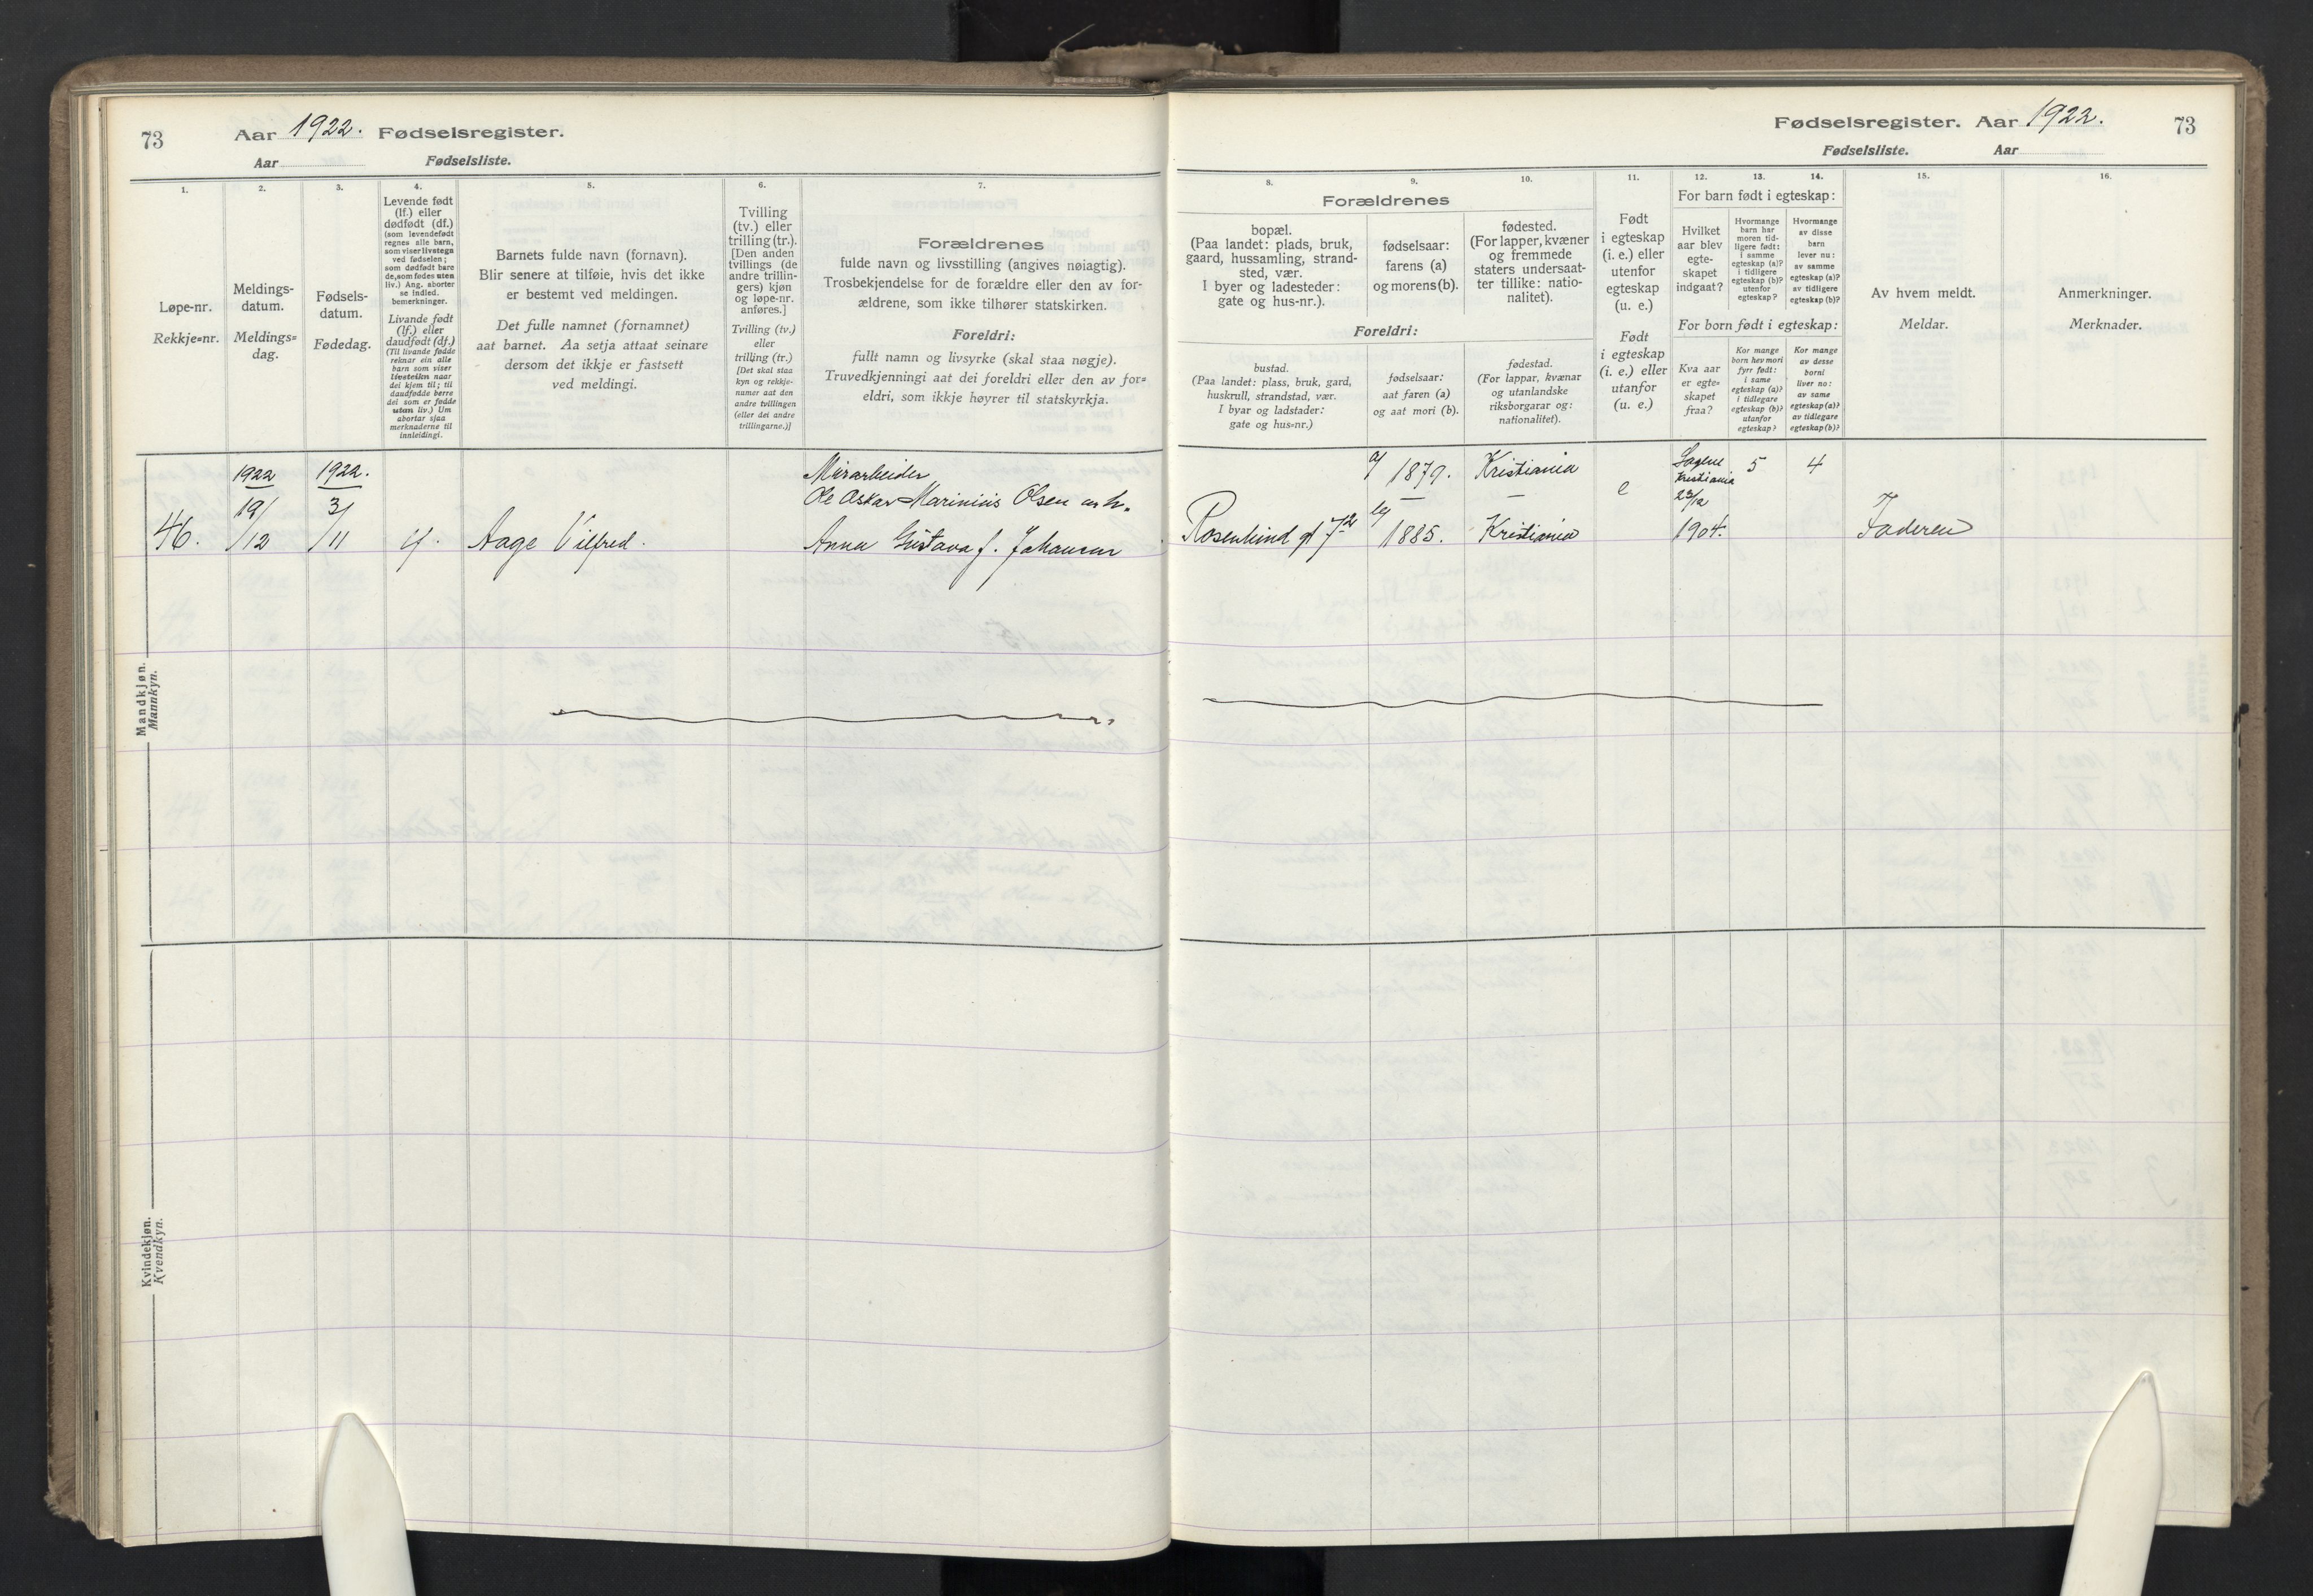 73
Aar 1922. Fødselsregister.
Aar Fødselsliste.
1.
Løpe-nr.
Rekkje=nr.
2.
Meldings-
datum.
Meldings=
dag.
3.
Fødsels-
datum.
Fødedag.
4.
Levende født
(lf.) eller
dødfødt (df.)
(som levendefødt
regnes alle barn,
som viser livstegn
ved fødselen;
som dødfødt bare
de, som fødes uten
liv.) Ang. aborter
se indled.
bemerkninger.
Livande født
(lf.) eller
daudfødt (df.)
(Til livande fødde
reknar ein alle
barn som viser
livsteikn naar
dei kjem til; til
daudfødde berre
dei som er fødde
utan liv.) Um
abortar sjaa
merknaderne til
innleidingi.
5.
Barnets fulde navn (fornavn).
Blir senere at tilføie, hvis det ikke
er bestemt ved meldingen.
Det fulle namnet (fornamnet)
aat barnet. Aa setja attaat seinare
dersom det ikkje er fastsett
ved meldingi.
6.
Tvilling
(tv.) eller
trilling (tr.).
[Den anden
tvillings (de
andre trillin-
gers) kjøn
og løpe-nr.
anføres.]
Tvilling (tv.)
eller
trilling (tr.)
[Det skal staa
kyn og rekkje-
numer aat den
andre tvillingen
(eller dei andre
trillingarne.)]
7.
Forældrenes
fulde navn og livsstilling (angives nøiagtig).
Trosbekjendelse for de forældre eller den av for-
ældrene, som ikke tilhører statskirken.
Foreldri:
fullt namn og livsyrke (skal staa nøgje).
Truvedkjenningi aat dei foreldri eller den av for=
eldri, som ikkje høyrer til statskyrkja.
Mandkjøn.
Mannkyn.
1922 1922. Murarbeider
19/ 3/ Ole Oskar Marinius Olsen o h.
46. /12 /11 lf. Aage Vilfred. Anna Gustava f. Johansen
Kvindekjøn.
Kvendkyn.
Fødselsregister. Aar 1922. 73
Fødselsliste. Aar
8.
Forældrenes
bopæl.
(Paa landet: plads, bruk,
gaard, hussamling, strand-
sted, vær.
I byer og ladesteder:
gate og hus-nr.).
9.
fødselsaar:
farens (a)
og morens (b).
10.
fødested.
(For lapper, kvæner
og fremmede
staters undersaat-
ter tillike: natio-
nalitet).
Foreldri:
bustad.
(Paa landet: plass, bruk, gard,
huskrull, strandstad, vær.
I byar og ladstader:
gate og hus=nr.)
fødselsaar:
aat faren (a)
og aat mori (b).
fødestad.
(For lappar, kvænar
og utanlandske
riksborgarar og:
nationalitet).
11.
Født
i egteskap
(i. e.) eller
utenfor
egteskap
(u. e.)
Født
i egteskap
(i. e.) eller
utanfor
(u. e.)
12. 13. 14.
For barn født i egteskap:
Hvilket
aar blev
egte-
skapet
indgaat?
Hvormange
barn har
moren tid-
ligere født:
i samme
egteskap (a)?
i tidligere
egteskap (b)?
utenfor
egteskap?
Hvormange
av disse
barn
lever nu:
av samme
egteskap (a)?
av tidligere
egteskap (b)?
For born født i egteskap:
Kva aar
er egte=
skapet
fraa?
Kor mange
born hev mori
fyrr født:
i same
egteskap (a)?
i tidlegare
egteskap (b)?
utanfor
egteskap?
Kor mange
av desse
borni
liver no:
av same
egteskap (a)?
av tidlegare
egteskap (b)?
15.
Av hvem meldt.
Meldar.
16.
Anmerkninger.
Merknader.
a/ 1879. Kristiania Sagene 5 4
Kristiania
e 23/12
Rosenlund gt 7² b/ 1885. Kristiania 1904. Faderen